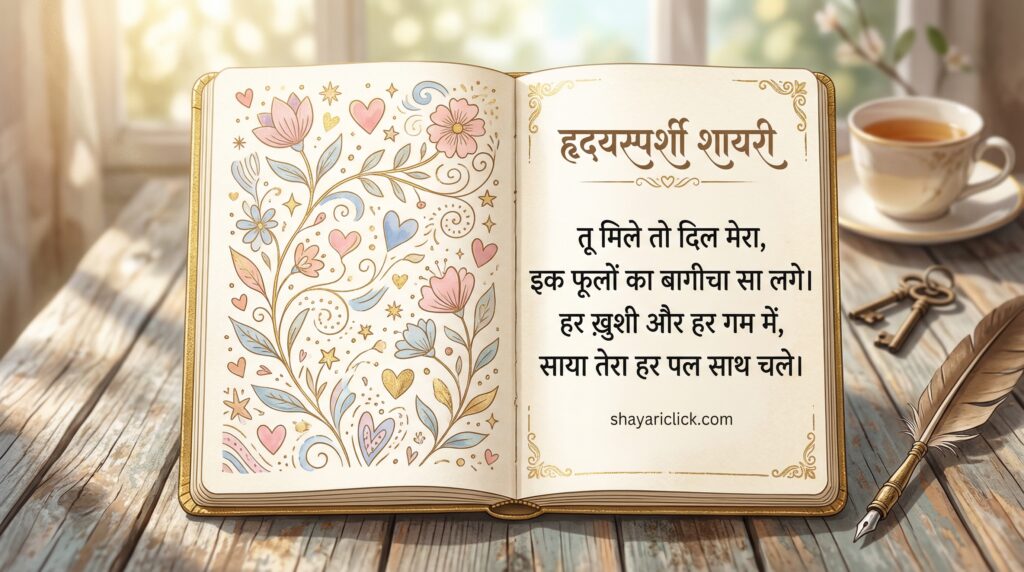 हृदयस्पर्शी शायरी
तू मिले तो दिल मेरा,
इक फूलों का बागीचा सा लगे।
हर ख़ुशी और हर गम में,
साया तेरा हर पल साथ चले।
shayariclick.com